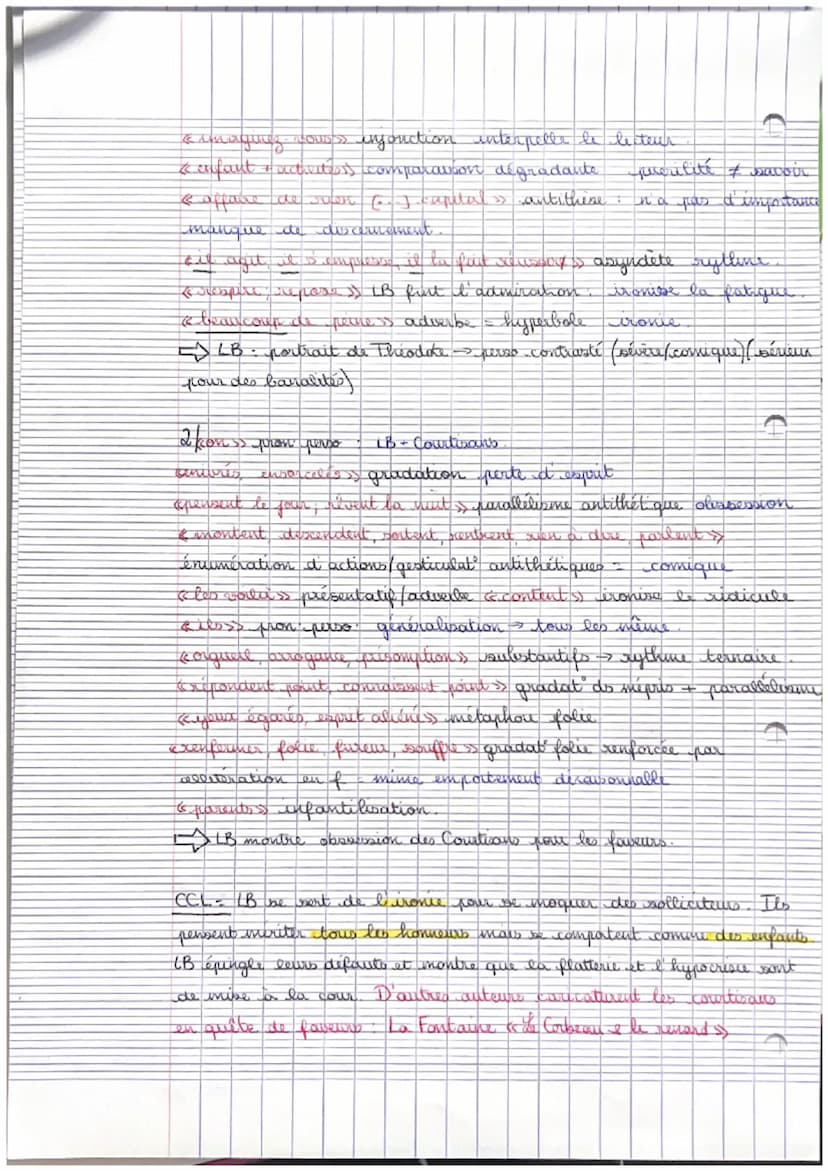 « imaginez-vous » injonction interpelle le lecteur.
« enfant + activités » comparaison dégradante puérilité ≠ savoir
« affaire de rien [...] capital » antithèse : n'a pas d'importance
manque de discernement.
« il agit, il s'empresse, il la fait réussir » asyndète rythme.
« respire, repose » LB feint l'admiration : ironise la fatigue.
« beaucoup de peine » adverbe = hyperbole ironie.
⇨ LB : portrait de Théodote → perso contrasté (sévère/comique) (sérieux
pour des banalités)
2/ « on » pron perso : LB + Courtisans.
« enivrés, ensorcelés » gradation perte d'esprit
« pensent le jour, rêvent la nuit » parallélisme antithétique obsession
« montent, descendent, sortent, rentrent rien à dire, parlent »
énumération d'actions/gesticulat° antithétiques = comique
« les voilà » présentatif/adverbe « content » ironise le ridicule
« ils » pron perso : généralisation → tous les même.
« orgueil, arrogance, présomption » substantifs → rythme ternaire.
« répondent point, connaissent point » gradat° du mépris + parallélisme
« yeux égarés, esprit aliéné » métaphore folie
« renfermer, folie, fureur, souffre » gradat° folie renforcée par
allitération en f = mime emportement déraisonnable
« parents » infantilisation.
⇨ LB montre obsession des Courtisans pour les faveurs.
CCL = LB se sert de l'ironie pour se moquer des solliciteurs. Ils
pensent mériter tous les honneurs mais se comportent comme des enfants
LB épingle leurs défauts et montre que la flatterie et l'hypocrisie sont
de mise à la cour. D'autres auteurs caricaturent les courtisans
en quête de faveurs : La Fontaine « Le Corbeau & le renard »